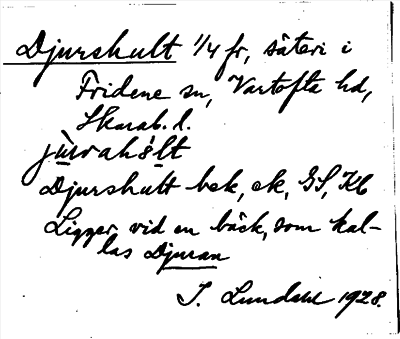 Djurshult 1/4 fr, säteri i
Fridene sn, Vartofta hd,
Skarab. l.
jùrahól̀t
Djurshult bek, ek, GS, Kb
Ligger vid en bäck, som kal-
las Djuran
I. Lundahl 1928.